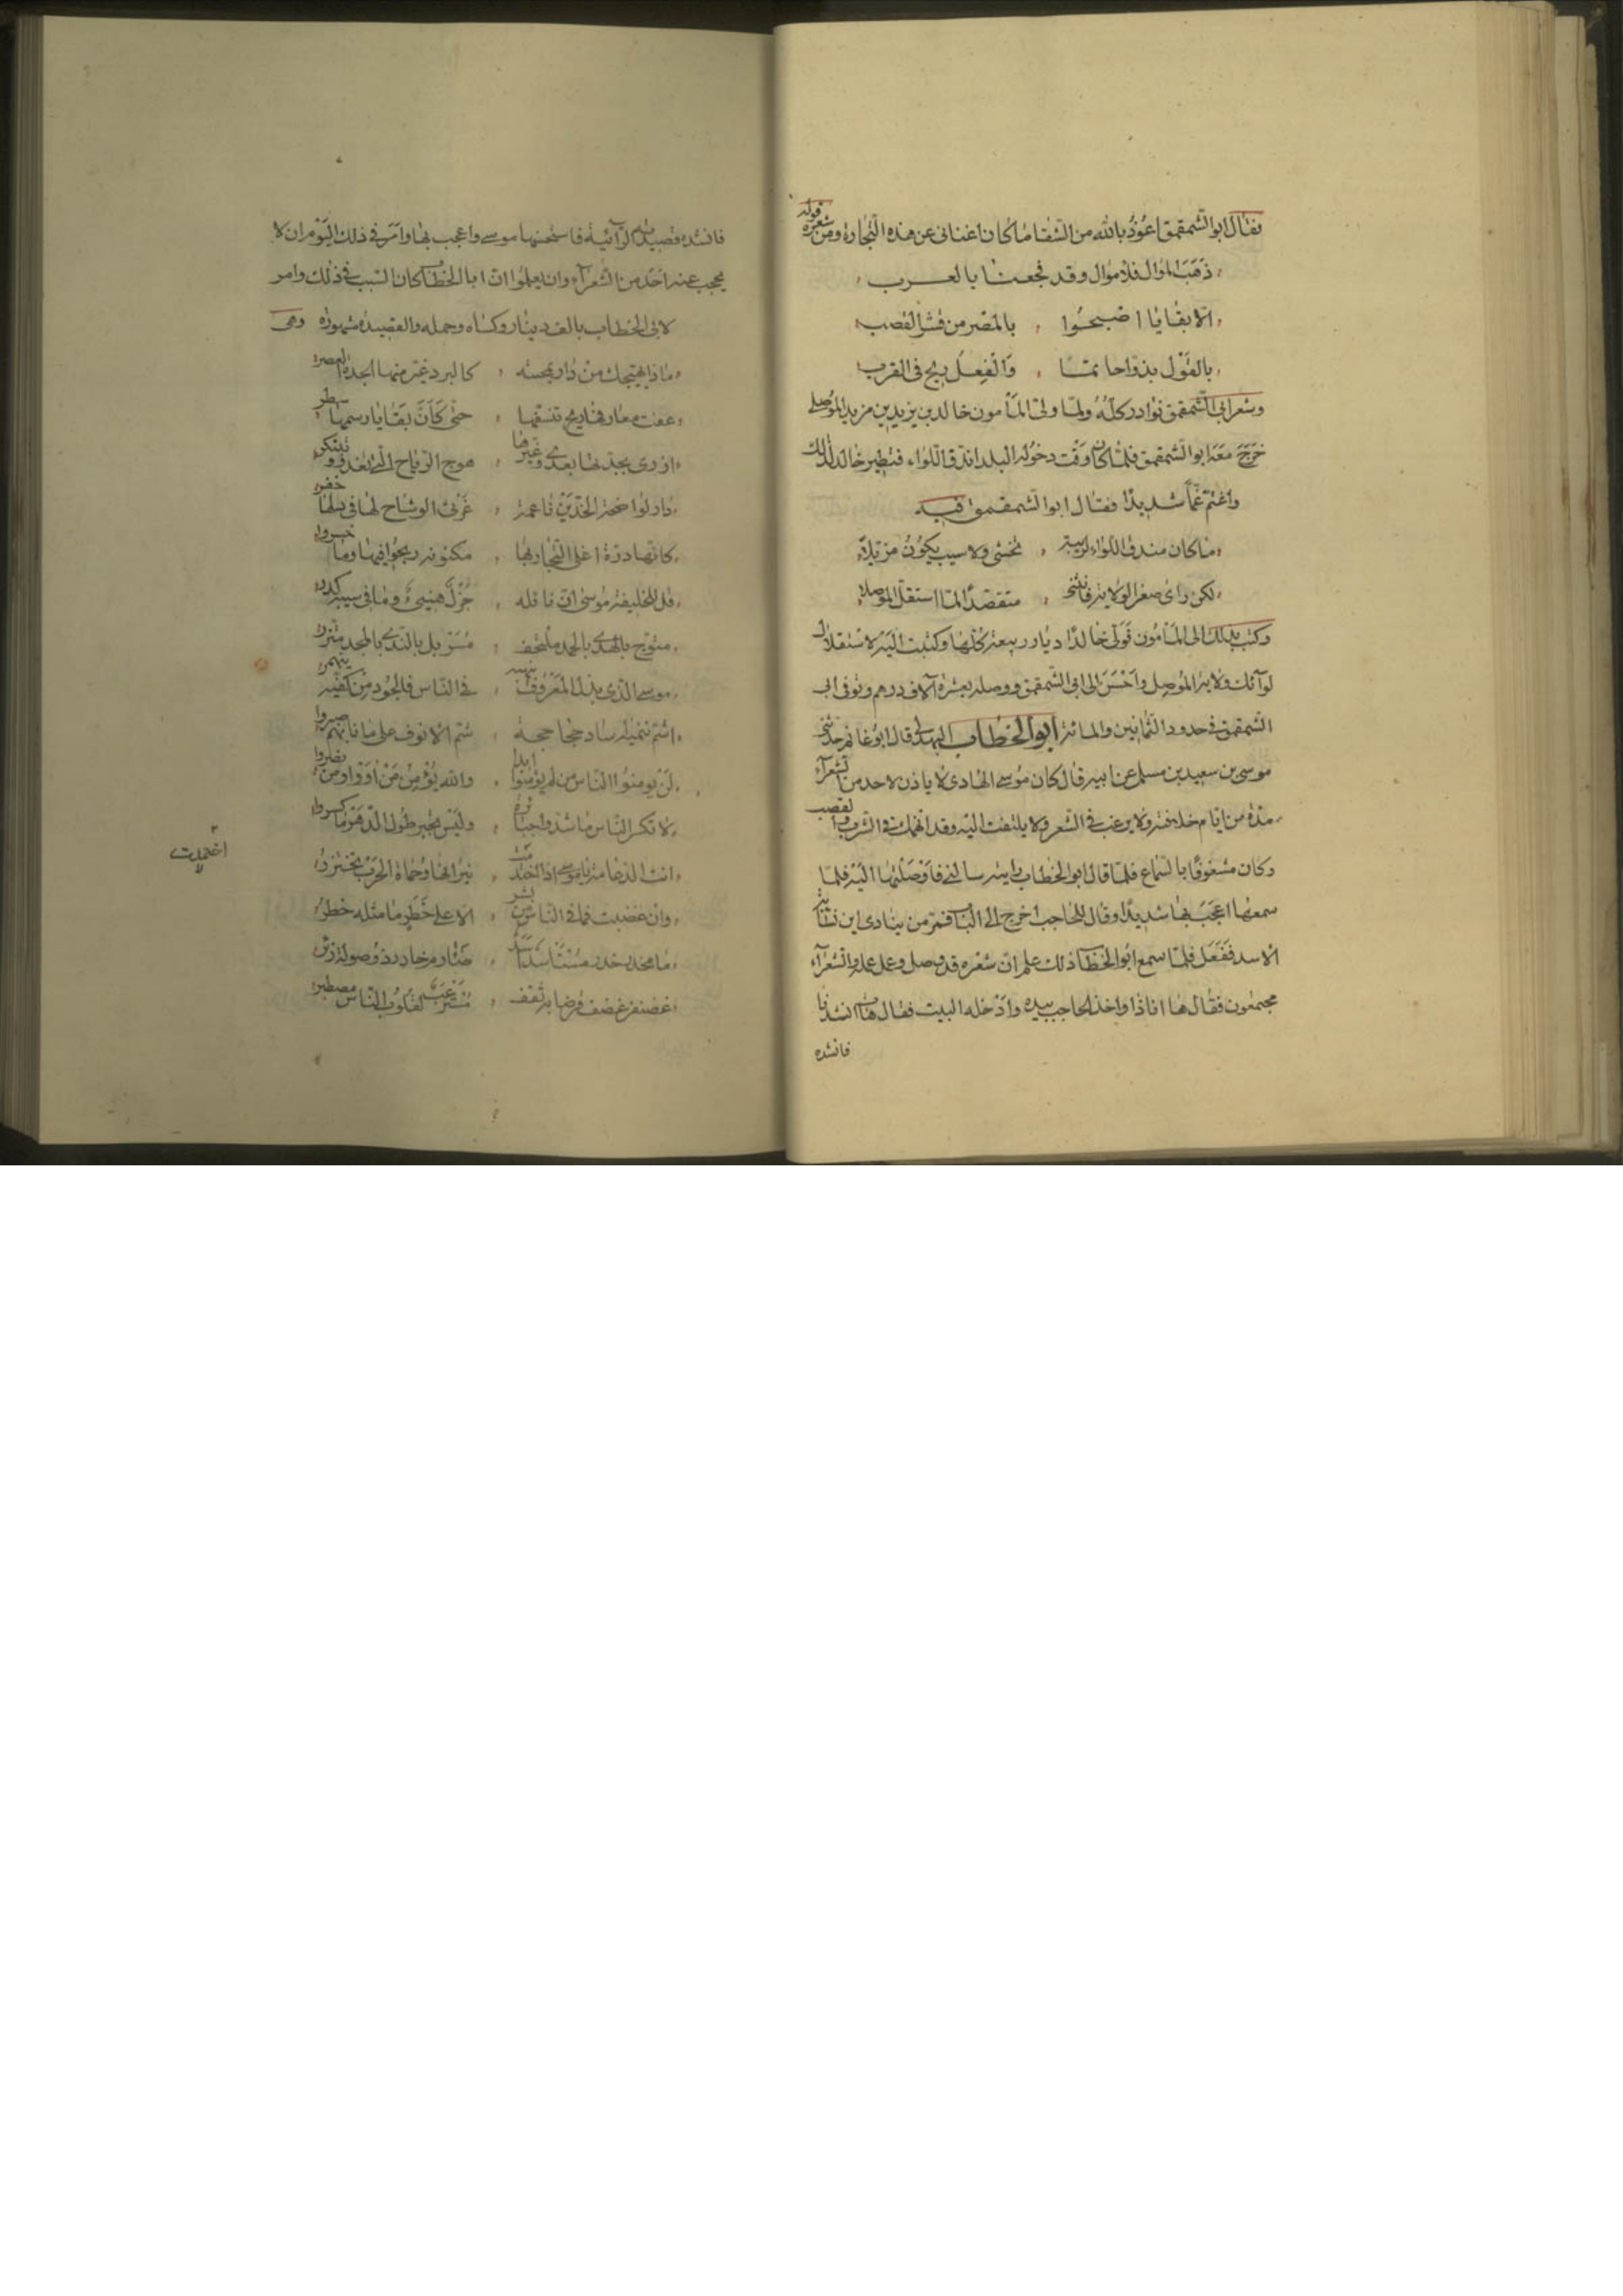 فقال ابو الشمقمق اعوذ بالله من الشقا ما كان اغنانى عن هذه التجارة ومن شعره قوله
ذهب الموال فلا موال وقد فجعنا بالعرب
الا بقايا اصبحوا بالمصر من قشر القصب
بالقول بذوا حاتما والفعل ريح فى القرب
وشعر ابى الشمقمق نوادر كله ولما ولى المأمون خالد بن يزيد بن مزيد الموصل
خرج معه ابو الشمقمق فلما كان وقت دخوله البلد اندق اللواء فتطير خالد لذلك
واغتم غماً شديداً فقال ابو الشمقمق فيه
ما كان مندق اللواء لريبة تخشى ولا سبب يكون مزيلا
لكن راى صغر الولاية فانثنى متقصداً لما استقل الموصلا
وكتب بذلك الى المأمون فولى خالداً ديار ربيعة كلها وكتبت اليه لاستقلال
لوآئك ولاية الموصل واحسن الى ابى الشمقمق ووصله بعشرة آلاف درهم وتوفى ابو
الشمقمق فى حدود الثمانين والمائة ابو الخطاب البهدلى قال ابو غانم حدثنى
موسى بن سعيد بن مسلم عن ابيه قال كان موسى الهادى لا ياذن لاحد من الشعرآء
مدة من ايام خلافته ولا يرغب فى الشعر ولا يلتفت اليه وقد انهمك فى الشرب والقصف
وكان مشغوفا بالسماع فلما قال ابو الخطاب رايته سالنى فاوصلتها اليه فلما
سمعها اعجب بها شديداً وقال للحاجب اخرج الى الباب فمر من ينادى اين
الاسد ففعل فلما سمع ابو الخطاب ذلك علم ان شعره قد وصل وعمل عمله والشعرآء
مجتمعون فقال ها انا ذا واخذ الحاجب بيده وادخله البيت فقال هات انشدنا
فانشده
فانشده قصيدته الرآئية فاستحسنها موسى واعجب بها وامر فى ذلك اليوم ان لا
يحجب عنه احد من الشعرآء وان يعلموا ان ابا الخطاب كان السبب فى ذلك وامر
لابى الخطاب بالف دينار وكساه وحمله والقصيدة مشهورة وهى
ماذا يهيجك من دار بمحنية كالبرد غير منها الجدة العصر
عفت معارفها ريح تنسفها حتى كأن بقايا رسمها سطر
ازرى بجدتها بعدى وغيرها هوج الرياح التى تغدو وتبتكر
دار لواضحة الخدين ناعمة غرثى الوشاح لها فى دلها خفر
كانها درة اغلى التجار بها مكنونة ربحوا فيها وما خسروا
قل للخليفة موسى ان نائله جزل هنيىء وما فى سيبه كدر
متوج بالهدى بالحمد ملتحف مسربل بالندى بالمجد متزر
موسى الذى بذل المعروف ينهبه فى الناس فالجود من كفيه ينهمر
اشم تنميه ساد حجاحجة شم الانوف على ما نابهم صبروا
لن يومنوا الناس من لم يؤمنوا ابدا والله يؤمن من آووا ومن نصروا
لا تكسر الناس ما شدوا جبائره وليس يجبر طول الدهر ما كسروا
انت الدعامة يا موسى اذا اختدمت نيرانها وحماة الحرب تجتزر
وان غضبت فما فى الناس من بشر الا على خطر ما مثله خطر
غضنفر مستر عب لقلوب الناس مصطبر
اختملت